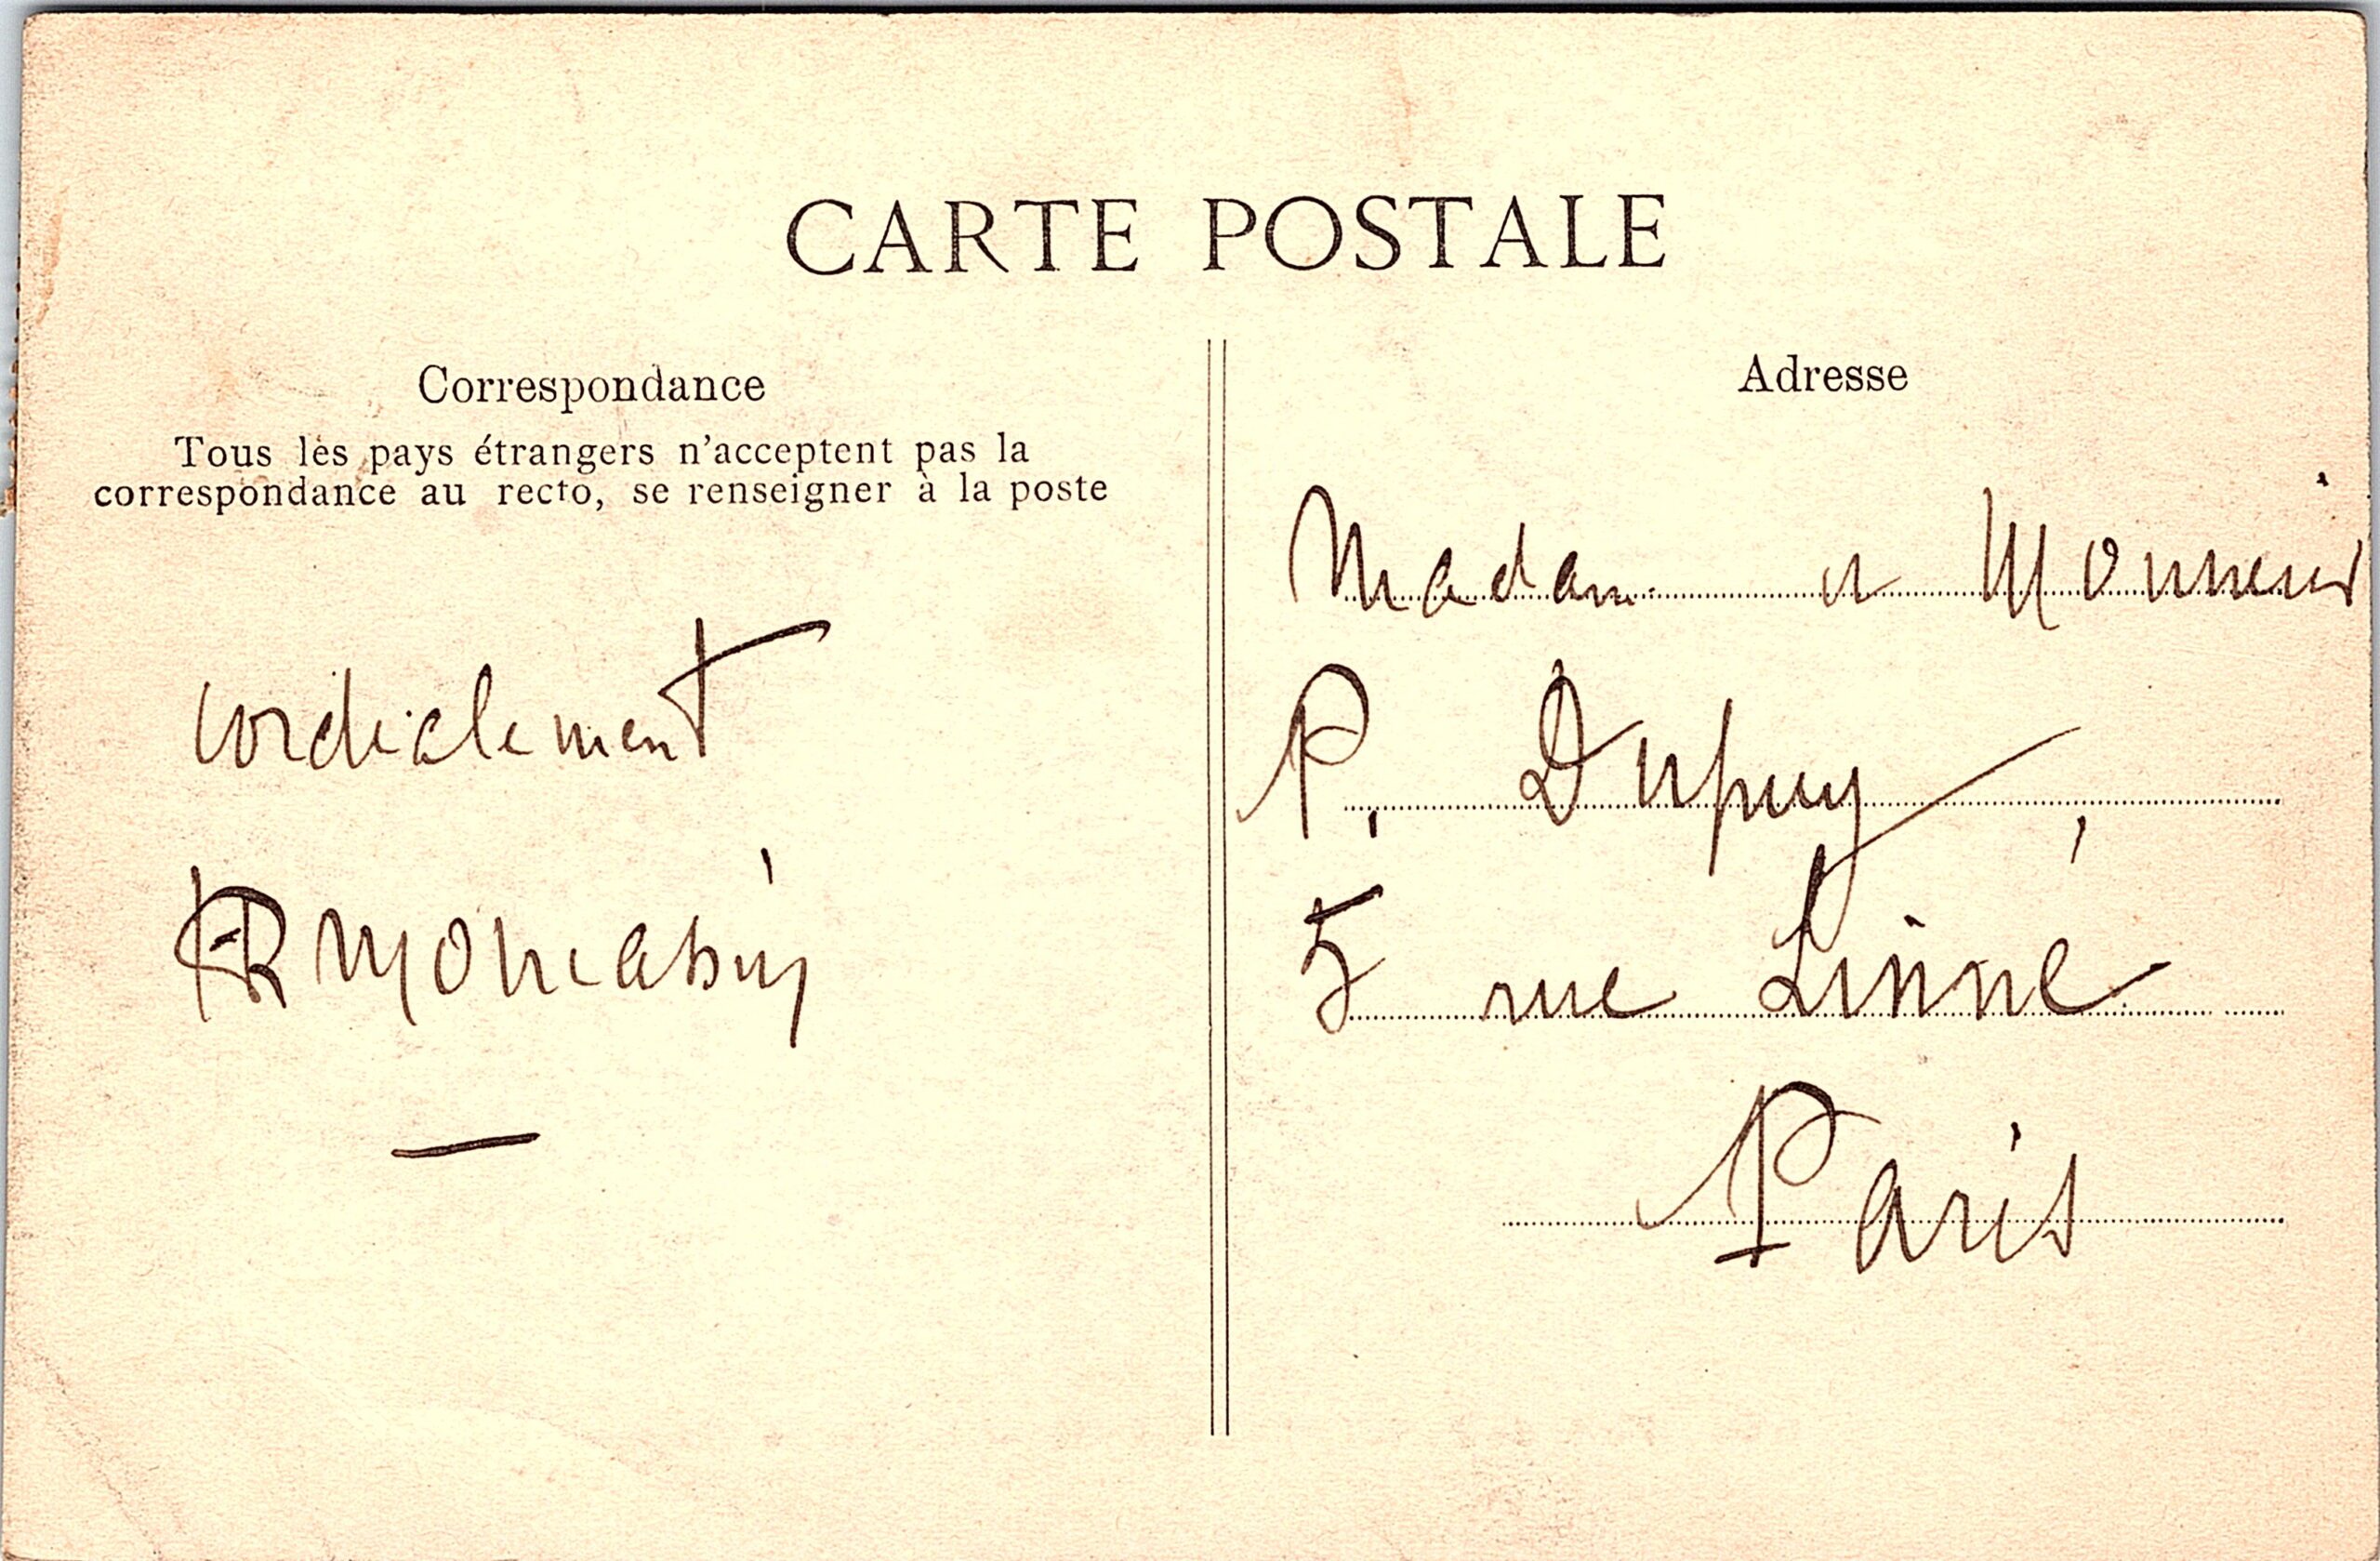 CARTE POSTALE
Correspondance
Tous les pays étrangers n'acceptent pas la
correspondance au recto, se renseigner à la poste
cordialement
Adresse
Madame et Monsieur
P. Dupuy
5 rue Linné
Paris